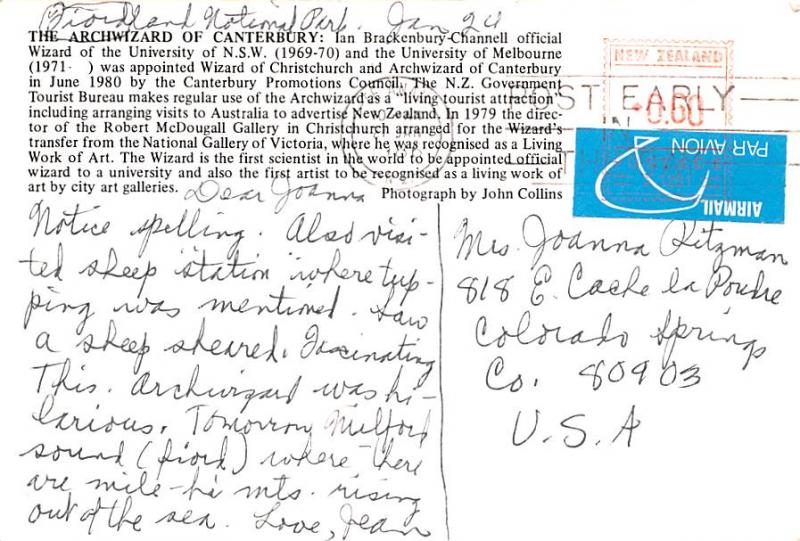 Fiordland National Park. Jan 24
THE ARCHWIZARD OF CANTERBURY: Ian Brackenbury-Channell official
Wizard of the University of N.S.W. (1969-70) and the University of Melbourne
(1971- ) was appointed Wizard of Christchurch and Archwizard of Canterbury
in June 1980 by the Canterbury Promotions Council. The N.Z. Government
Tourist Bureau makes regular use of the Archwizard as a "living tourist attraction"
including arranging visits to Australia to advertise New Zealand. In 1979 the direc-
tor of the Robert McDougall Gallery in Christchurch arranged for the Wizard's
transfer from the National Gallery of Victoria, where he was recognised as a Living
Work of Art. The Wizard is the first scientist in the world to be appointed official
wizard to a university and also the first artist to be recognised as a living work of
art by city art galleries.
Photograph by John Collins
Dear Joanna
Notice spelling. Also visi-
ted sheep "station" where tup-
ping was mentioned. Saw
a sheep sheared. Fascinating
This. Archwizard was hi-
larious. Tomorrow Milford
sound (fiord) where there
are mile-hi mts. rising
out of the sea. Love, Jean
NEW ZEALAND
0.60
POST EARLY
IN
AIRMAIL
PAR AVION
Mrs. Joanna Ritzman
818 E. Cache la Poudre
Colorado Springs
Co. 80903
U.S.A